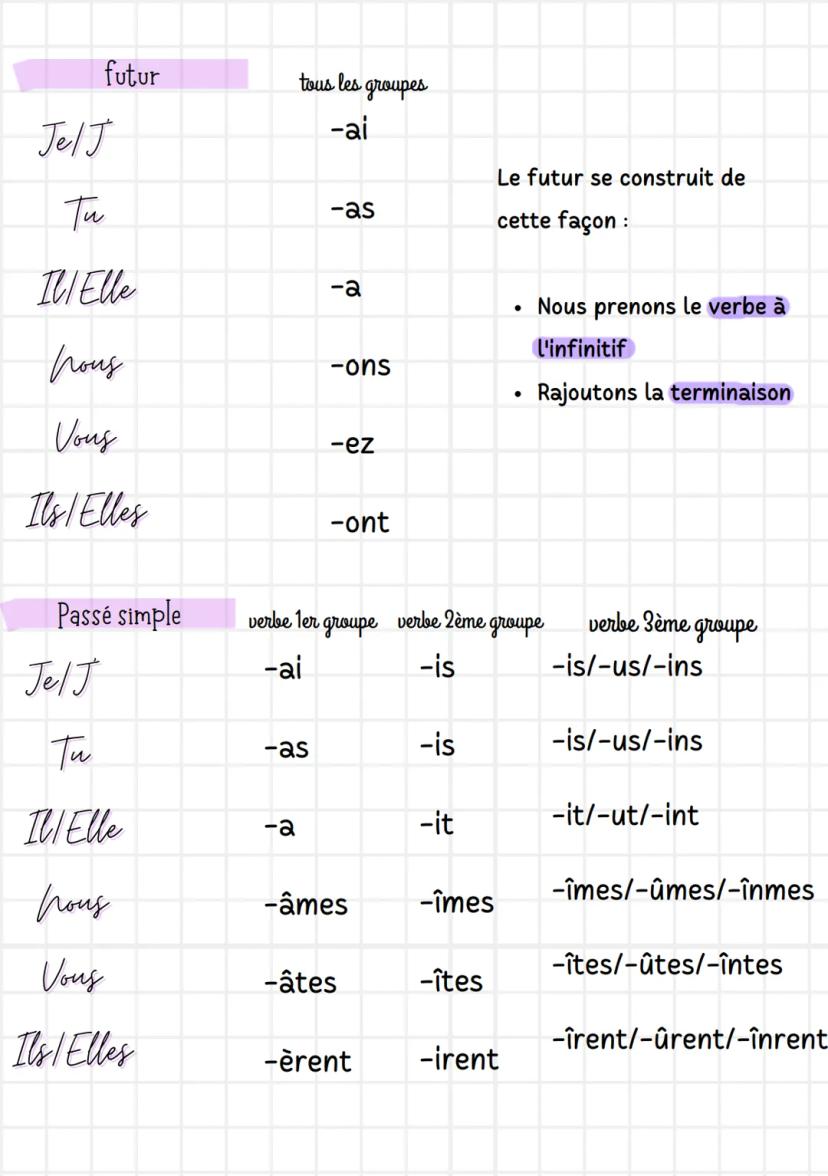 futur tous les groupes
Je/J' -ai
Tu -as
Il/Elle -a
Nous -ons
Vous -ez
Ils/Elles -ont
Le futur se construit de
cette façon :
• Nous prenons le verbe à
l'infinitif
• Rajoutons la terminaison
Passé simple verbe 1er groupe verbe 2ème groupe verbe 3ème groupe
Je/J' -ai -is -is/-us/-ins
Tu -as -is -is/-us/-ins
Il/Elle -a -it -it/-ut/-int
Nous -âmes -îmes -îmes/-ûmes/-înmes
Vous -âtes -îtes -îtes/-ûtes/-întes
Ils/Elles -èrent -irent -îrent/-ûrent/-înrent